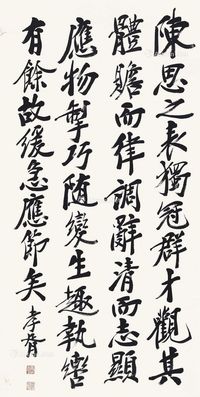 陳思之表獨冠群才觀其
體贍而律調辭清而志顯
應物掣巧随變生趣執轡
有餘故緩急應節矣 孝胥